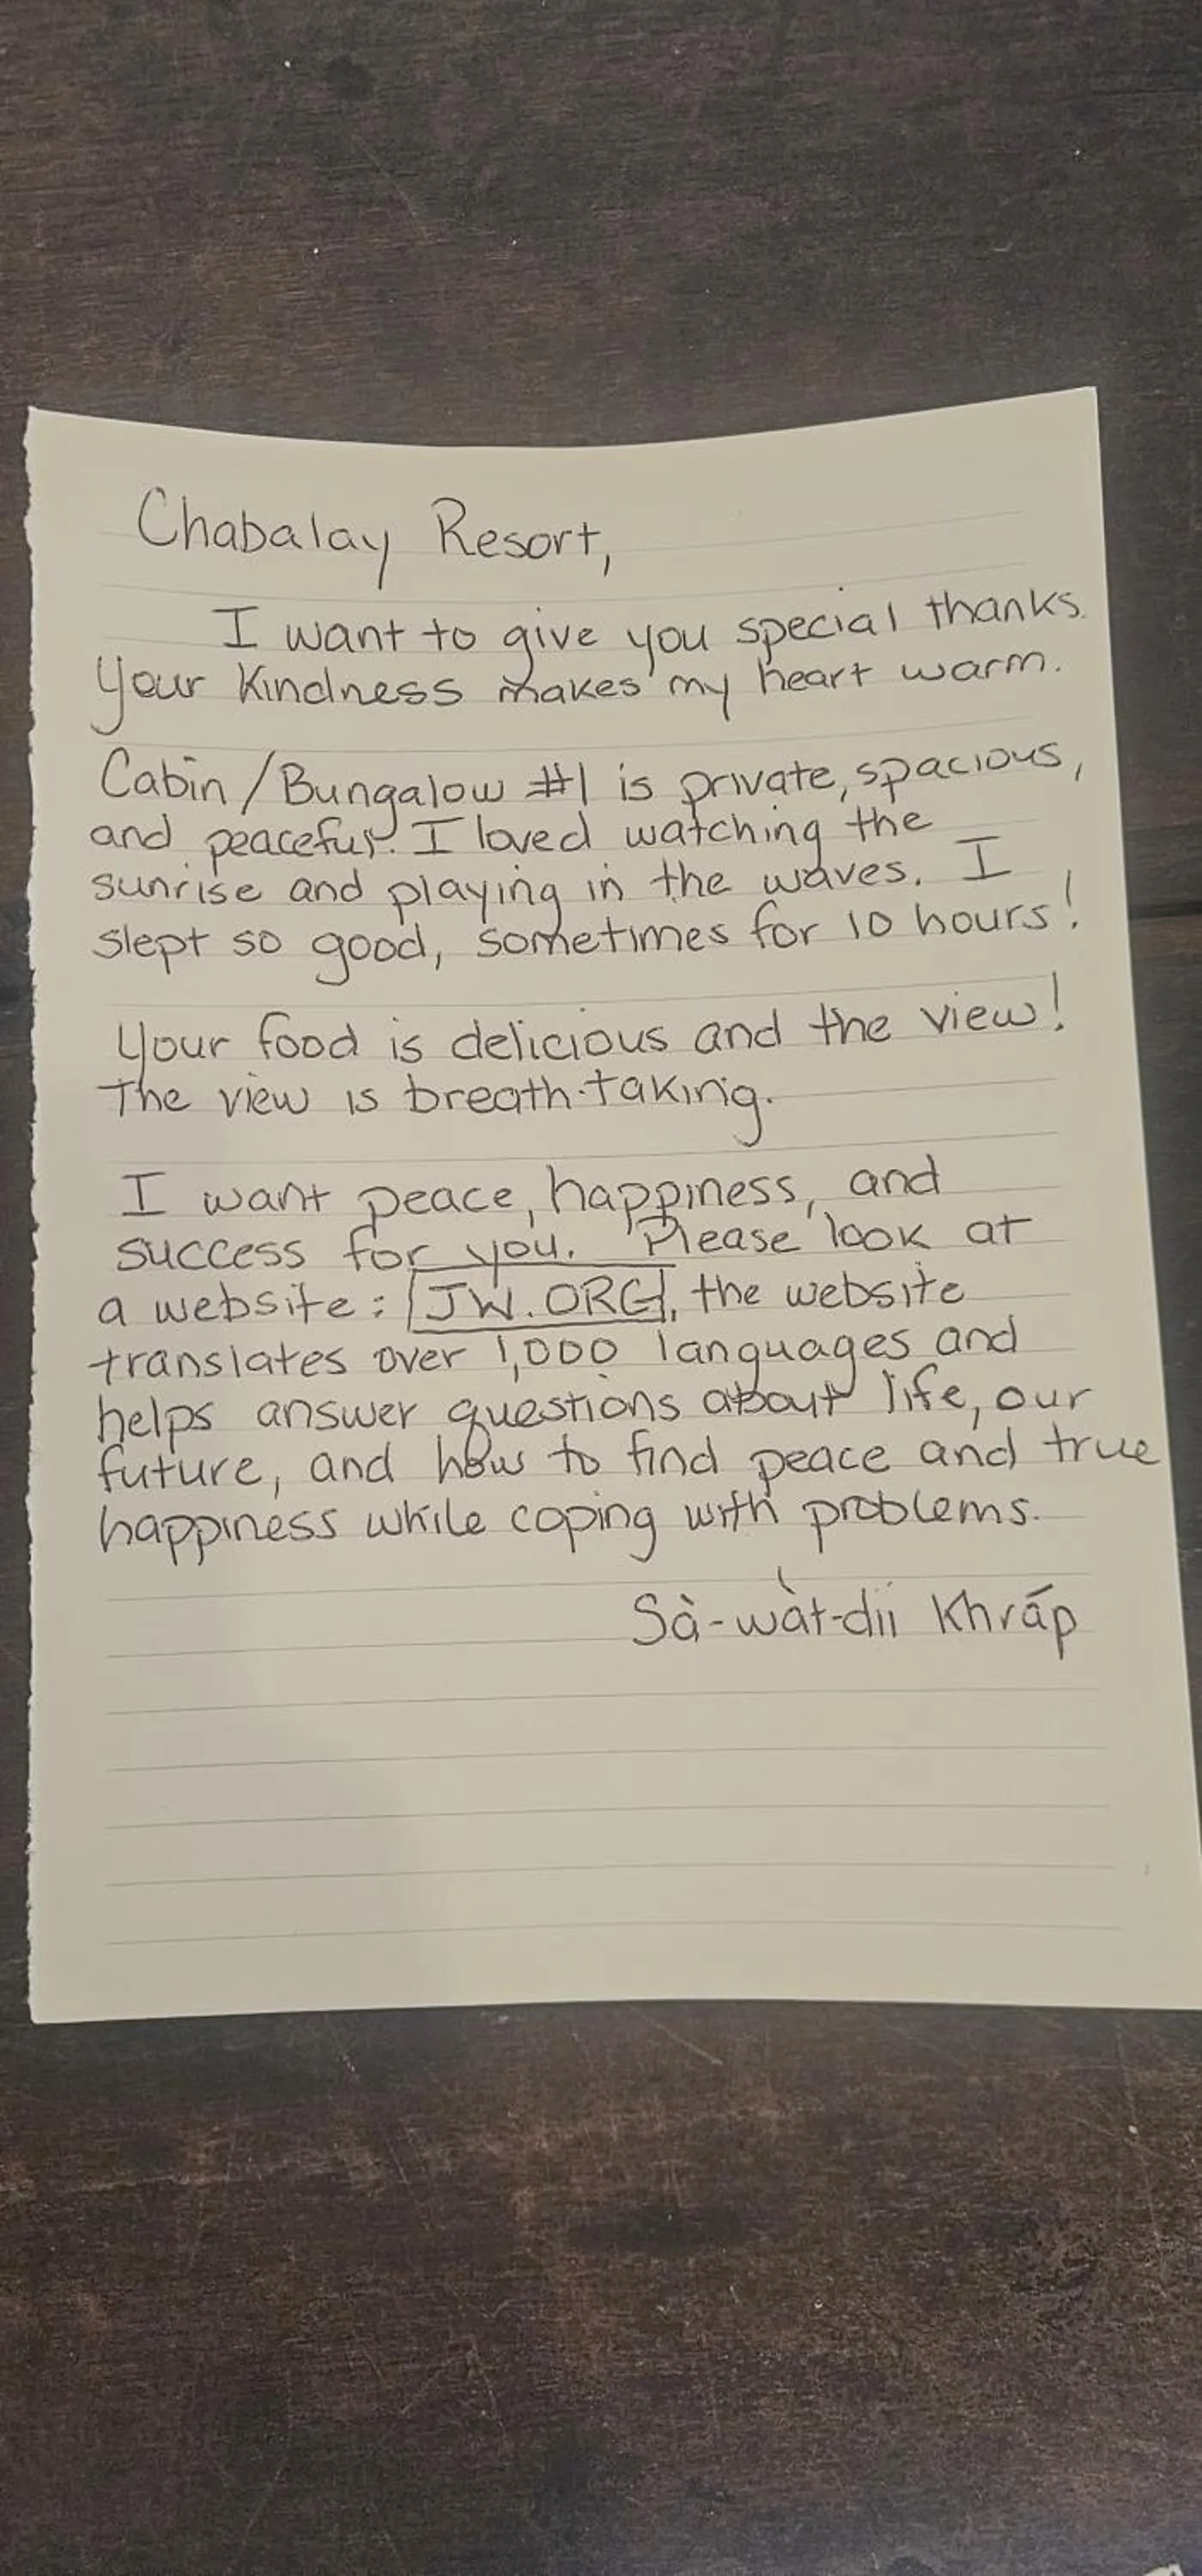 Chabalay Resort,
I want to give you special thanks.
Your Kindness makes my heart warm.
Cabin/Bungalow #1 is private, spacious,
and peaceful. I loved watching the
sunrise and playing in the waves. I
slept so good, sometimes for 10 hours!
Your food is delicious and the view!
The view is breath-taking.
I want peace, happiness, and
success for you. Please look at
a website: JW.ORG, the website
translates over 1,000 languages and
helps answer questions about life, our
future, and how to find peace and true
happiness while coping with problems.
Sà-wàt-dii Khráp